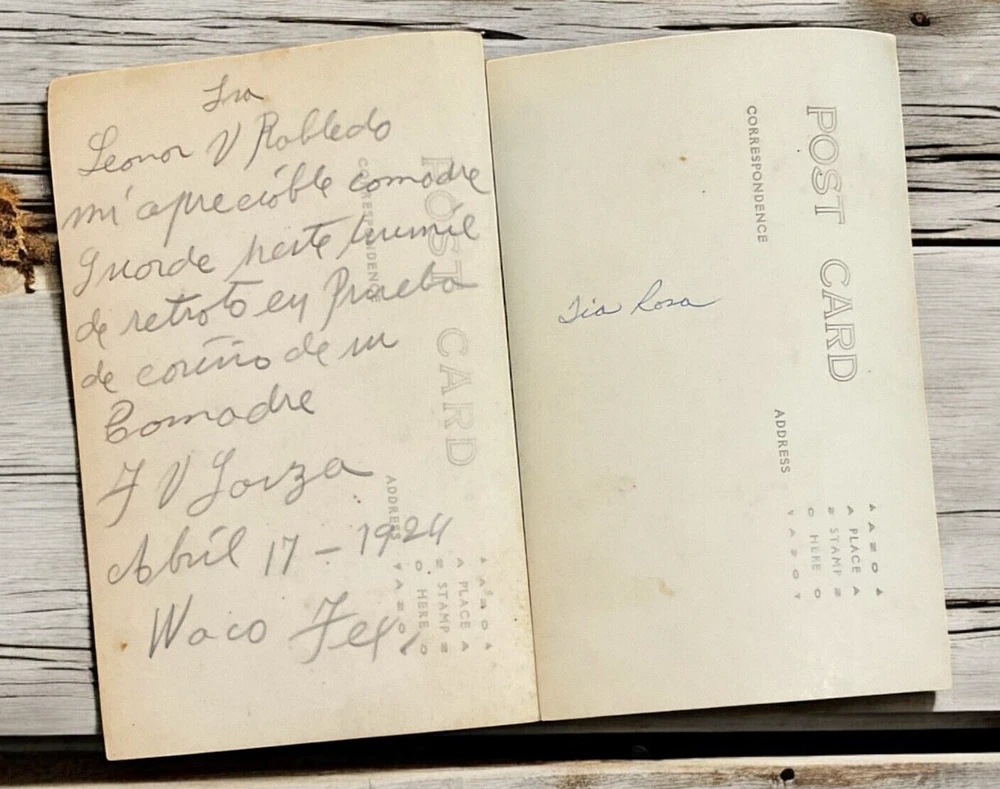 Sra
Leonor V Robledo
mi aprecióble comadre
Guorde heste humil
de retroto en Prueba
de coriño de su
Comadre
F V Garza
Abril 17 - 1924
Waco Tex,
POST CARD
CORRESPONDENCE
ADDRESS
AZO
PLACE
STAMP
HERE
AZO
Tia Rosa
POST CARD
CORRESPONDENCE
ADDRESS
AZO
PLACE
STAMP
HERE
AZO